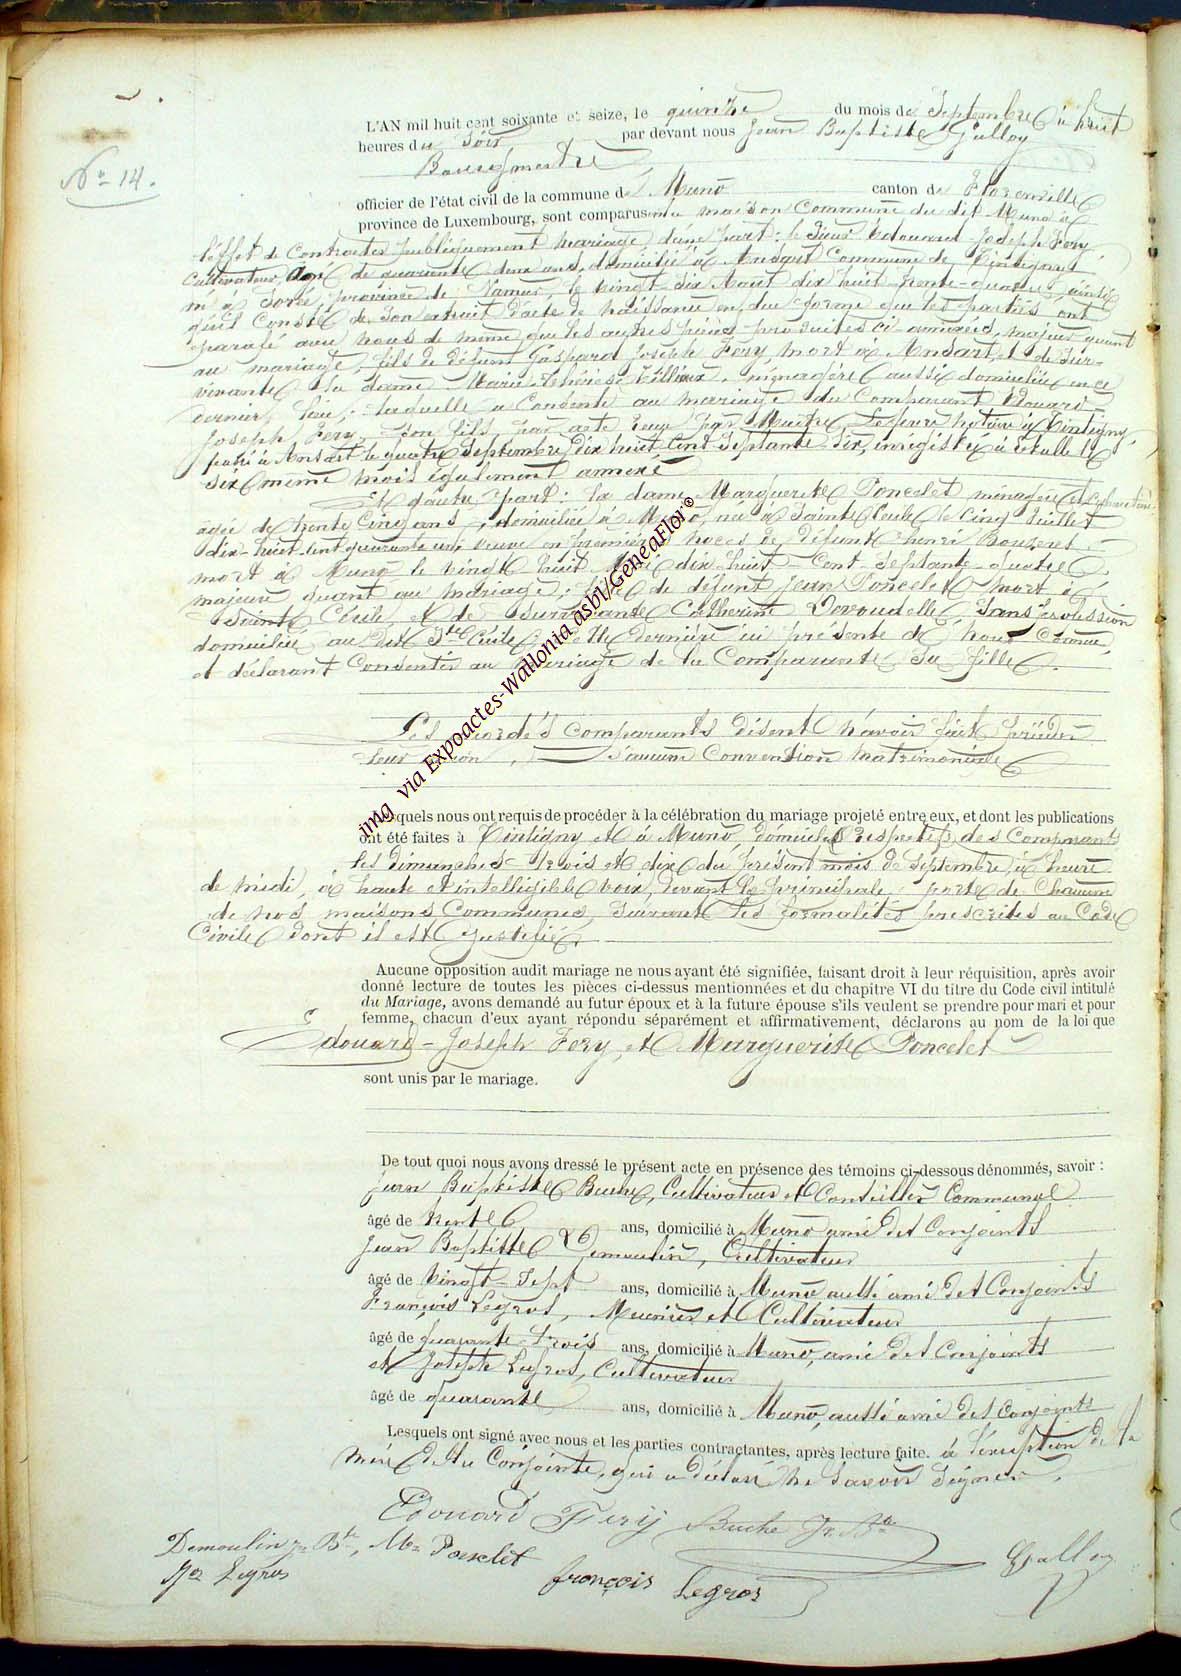 No 14.
L'AN mil huit cent soixante et seize, le quinze du mois de Septembre à huit
heures du Soir par devant nous Jean Baptiste Galloy
Bourgmestre
officier de l'état civil de la commune de Muno canton de Florenville
province de Luxembourg, sont comparus en la maison Commune du dit Muno à
l'effet de Contracter publiquement mariage, d'une part: le Sieur Edouard-Joseph Fery,
Cultivateur, âgé de quarante deux ans, domicilié à Ansart Commune de Tintigny,
né à Sorée, province de Namur, le vingt-six Aout dix huit-trente-quatre, ainsi
qu'il Conste de Son extrait d'acte de naissance en due forme que les parties ont
parafé avec nous de même que les autres pièces produites ci-annexées, majeur quant
au mariage, fils de défunt Gaspard Joseph Fery mort à Ansart, et de Sur-
vivante la dame Marie-Thérèse Zillieux, ménagère aussi domiciliée en ce
dernier lieu; laquelle a Consenti au mariage du Comparant Edouard
Joseph Fery, Son fils par acte reçu par Maitre Lefevre Notaire à Tintigny,
passé à Ansart le quatre Septembre dix huit Cent Septante Six, enregistré à Etalle le
Six même mois également annexé
Et d'autre part: la dame Marguerite Poncelet ménagère et cultivatrice
âgée de trente Cinq ans, domiciliée à Muno, née à Sainte Cécile le Cinq Juillet
dix-huit-cent quarante un, veuve en premières noces de défunt Henri Bouzeret
mort à Muno le vingt huit Mai dix huit-Cent-Septante-quatre,
majeure quant au mariage; fille de défunt Jean Poncelet mort à
Sainte Cécile et de Survivante Catherine Devoudelle, Sans profession
domiciliée au dit Ste Cécile; Cette dernière ici présente de nous Connue,
et déclarant Consentir au mariage de la Comparante Sa fille.
Les Susdits comparants disent n'avoir fait précéder
leur union, d'aucune Convention matrimoniale
Lesquels nous ont requis de procéder à la célébration du mariage projeté entre eux, et dont les publications
ont été faites à Tintigny et à Muno, domiciles respectifs des Comparants
les dimanches trois et dix du présent mois de Septembre, à heure
de midi, à haute et intelligible voix, devant la principale porte de Chacune
de nos maisons Communes, Suivant les formalités prescrites au Code
Civile dont il est Justifié.
Aucune opposition audit mariage ne nous ayant été signifiée, faisant droit à leur réquisition, après avoir
donné lecture de toutes les pièces ci-dessus mentionnées et du chapitre VI du titre du Code civil intitulé
du Mariage, avons demandé au futur époux et à la future épouse s'ils veulent se prendre pour mari et pour
femme, chacun d'eux ayant répondu séparément et affirmativement, déclarons au nom de la loi que
Edouard-Joseph Fery, et Marguerite Poncelet
sont unis par le mariage.
De tout quoi nous avons dressé le présent acte en présence des témoins ci-dessous dénommés, savoir :
Jean Baptiste Buche, Cultivateur et Conseiller Communal
âgé de trente ans, domicilié à Muno ami des Conjoints
Jean Baptiste Demoulin, Cultivateur
âgé de Vingt-Sept ans, domicilié à Muno aussi ami des Conjoints
François Legros, Meunier et Cultivateur
âgé de quarante-trois ans, domicilié à Muno, ami des Conjoints
et Joseph Legros, Cultivateur
âgé de quarante ans, domicilié à Muno, aussi ami des Conjoints
Lesquels ont signé avec nous et les parties contractantes, après lecture faite. à l'exception de la
mère de la Conjointe, qui a déclaré ne Savoir Signer.
Edouard Fery Buche Jn Bte
Demoulin Jn Bte, Mte Poncelet Galloy
Jos Legros françois Legros
img via Expoactes-Wallonia asbl/GeneaFlor®